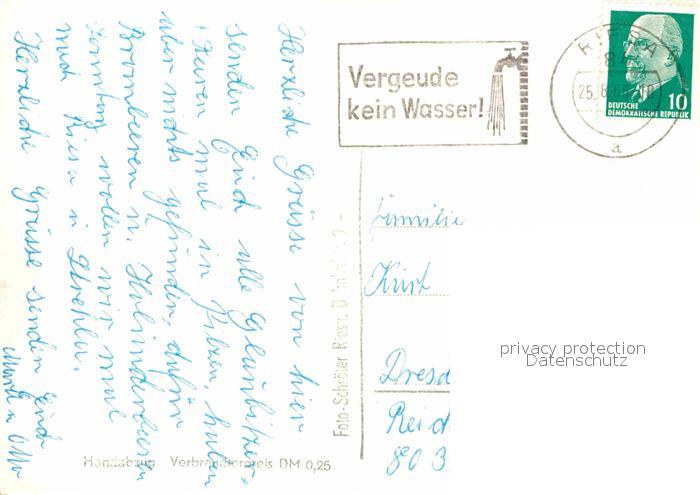 Herzliche Grüsse von hier
senden Euch alle Glaubitzer.
Waren mal in Pilzen, haben
aber nichts gefunden, dafür
Brombeeren u. Holunderbeeren
Sonntag wollen wir mal
nach Riesa u. Strehla.
Herzliche Grüsse senden Euch
Vergeude
kein Wasser!
RIESA
84
25.8.
a
10
DEUTSCHE
DEMOKRATISCHE REPUBLIK
Familie
Kurt
Dresd
Reid
803
privacy protection
Datenschutz
Foto-Schröter Riesa,
Handabzug Verbraucherpreis DM 0,25